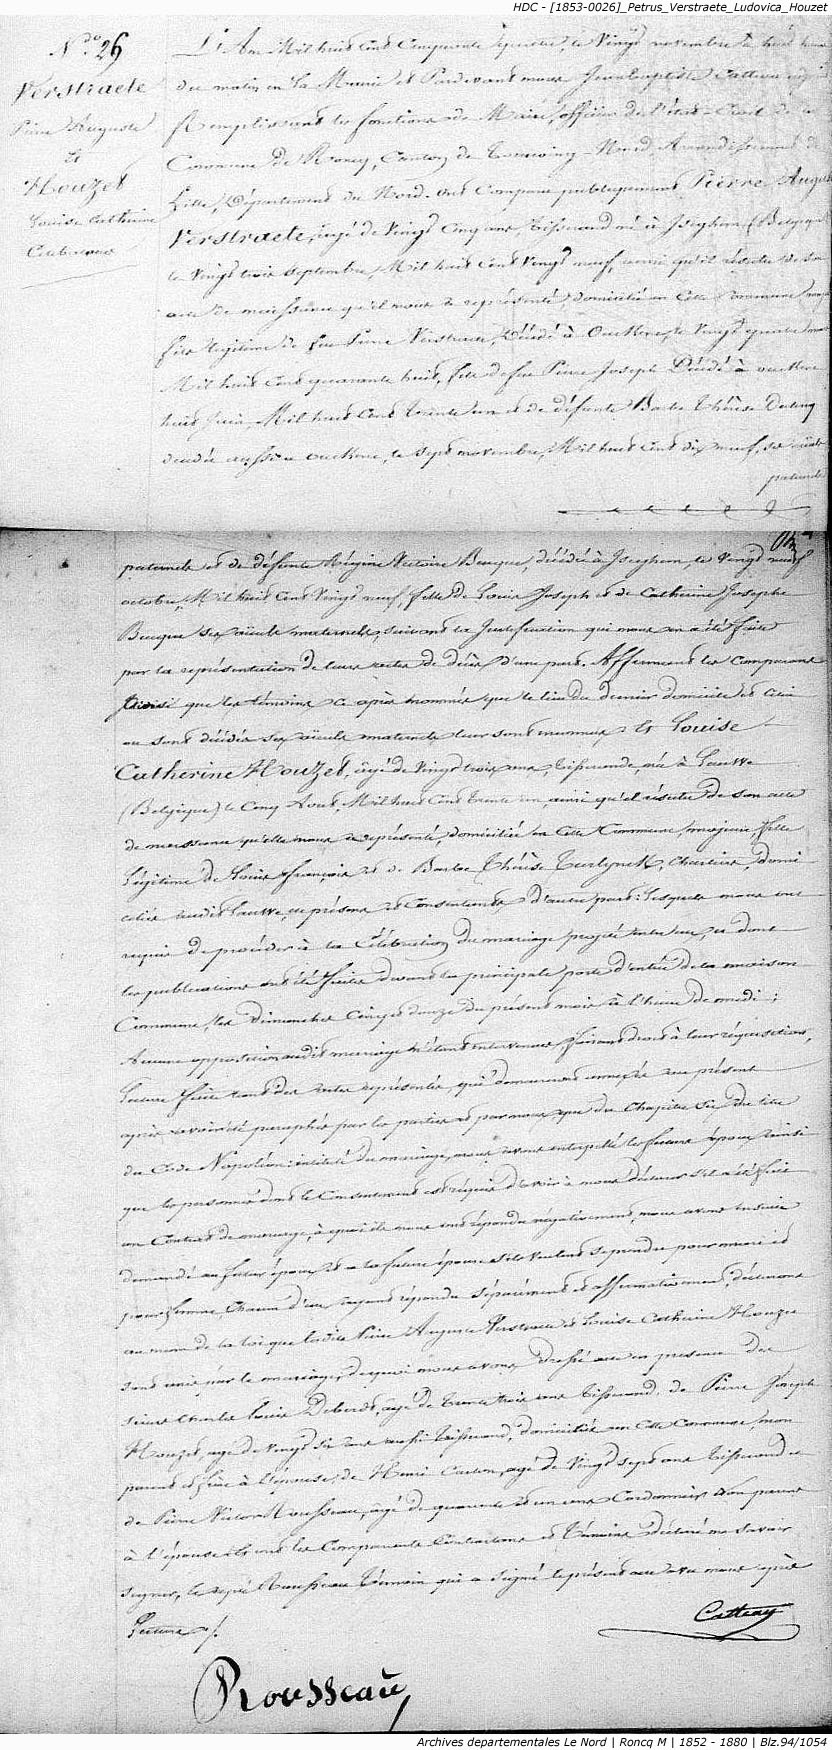 HDC - [1853-0026]_Petrus_Verstraete_Ludovica_Houzet
N.º 26
Verstraete
Pierre Auguste
Et
Houzet
Louise Catherine
Celibataires
L'An Mil huit cent Cinquante quatre, le Vingt novembre à huit heures
du matin en la Mairie et Pardevant nous Jean Baptiste Catteau
Remplissant les fonctions de Maire, officier de l'état-Civil de la
Commune de Roncq, Canton de Tourcoing-Nord, Arrondissement de
Lille, Département du Nord. ont Comparu publiquement Pierre Auguste
Verstraete, âgé de Vingt Cinq ans, Tisserand né à Iseghem (Belgique)
le Vingt trois septembre, Mil huit cent Vingt neuf, ainsi qu'il résulte de son
acte de naissance qu'il nous a représenté, domicilié en cette Commune
fils légitime de feu Pierre Verstraete, Décédé à Ouckene, le Vingt quatre
Mil huit cent quarante huit, fils de feu Pierre Joseph Décédé à ouckene
huit Juin Mil huit cent trente un et de défunte Barbe Thérèse
décédée aussi à ouckene, le sept novembre, Mil huit cent dix neuf, ses aïeuls
paternels
paternels et de défunte Régine Victoire Bucque, décédée à Iseghem, le Vingt neuf
octobre, Mil huit cent Vingt neuf, fille de Louis Joseph et de Catherine Josephe
Bucque ses aïeuls maternels, suivant la Justification qui nous en a été faite
par la représentation de leurs actes de décès d'une part. Affirmant les Comparants
que les témoins ci après nommés que le lieu du dernier domicile et celui
où sont décédés ses aïeuls maternels leur sont inconnus. Et Louise
Catherine Houzet, âgée de Vingt trois ans, Tisserande, née à Lauwe
(Belgique) le Cinq Août, Mil huit Cent Trente un, ainsi qu'il résulte de son acte
de naissance qu'elle nous a représenté, domiciliée en cette Commune, majeure fille
Légitime de Louis François et de Barbe Thérèse Turlynck, domi-
ciliés audit Lauwe, ici présens et Consentants d'autre part : Lesquels nous ont
requis de procéder à la Célébration du mariage projeté entre eux, et dont
les publications ont été faites devant la principale porte d'entrée de la maison
Commune, les Dimanches Cinq et douze du présent mois à l'heure de midi ;
Aucune opposition audit mariage n'étant intervenue, faisant droit à leur réquisition,
Lecture faite tant des actes représentés, qui demeureront annexés au présent
après avoir été paraphés par les parties et par nous que du Chapitre Six du titre
du Code Napoléon : intitulé du mariage, nous avons interpellé les futurs époux, ainsi
que les personnes dont le Consentement est requis d'avoir à nous déclarer s'il a été fait
un Contrat de mariage, à quoi ils nous ont répondu négativement, nous avons ensuite
demandé au futur époux et à la future épouse s'ils veulent se prendre pour mari et
pour femme, Chacun d'eux ayant répondu séparément et affirmativement, déclarons
au nom de la loi que lesdits Pierre Auguste Verstraete et Louise Catherine Houzet
sont unis par le mariage, de quoi nous avons dressé acte en présence des
sieurs Charles Louis, âgé de Trente trois ans Tisserand, de Pierre Joseph
Houzet, âgé de Vingt Six ans aussi Tisserand, domiciliés en cette Commune, non
parent et frère à l'épouse, de Henri Carton, âgé de Vingt sept ans Tisserand et
de Pierre Victor Rousseau, âgé de quarante et un ans Cordonnier non parens
à l'épouse. Et ont les Comparants Contractans et Témoins déclaré ne savoir
signer, le sieur Rousseau Témoin qui a signé le présent acte avec nous après
Lecture ./.
Catteau
Rousseau
Archives departementales Le Nord | Roncq M | 1852 - 1880 | Blz.94/1054